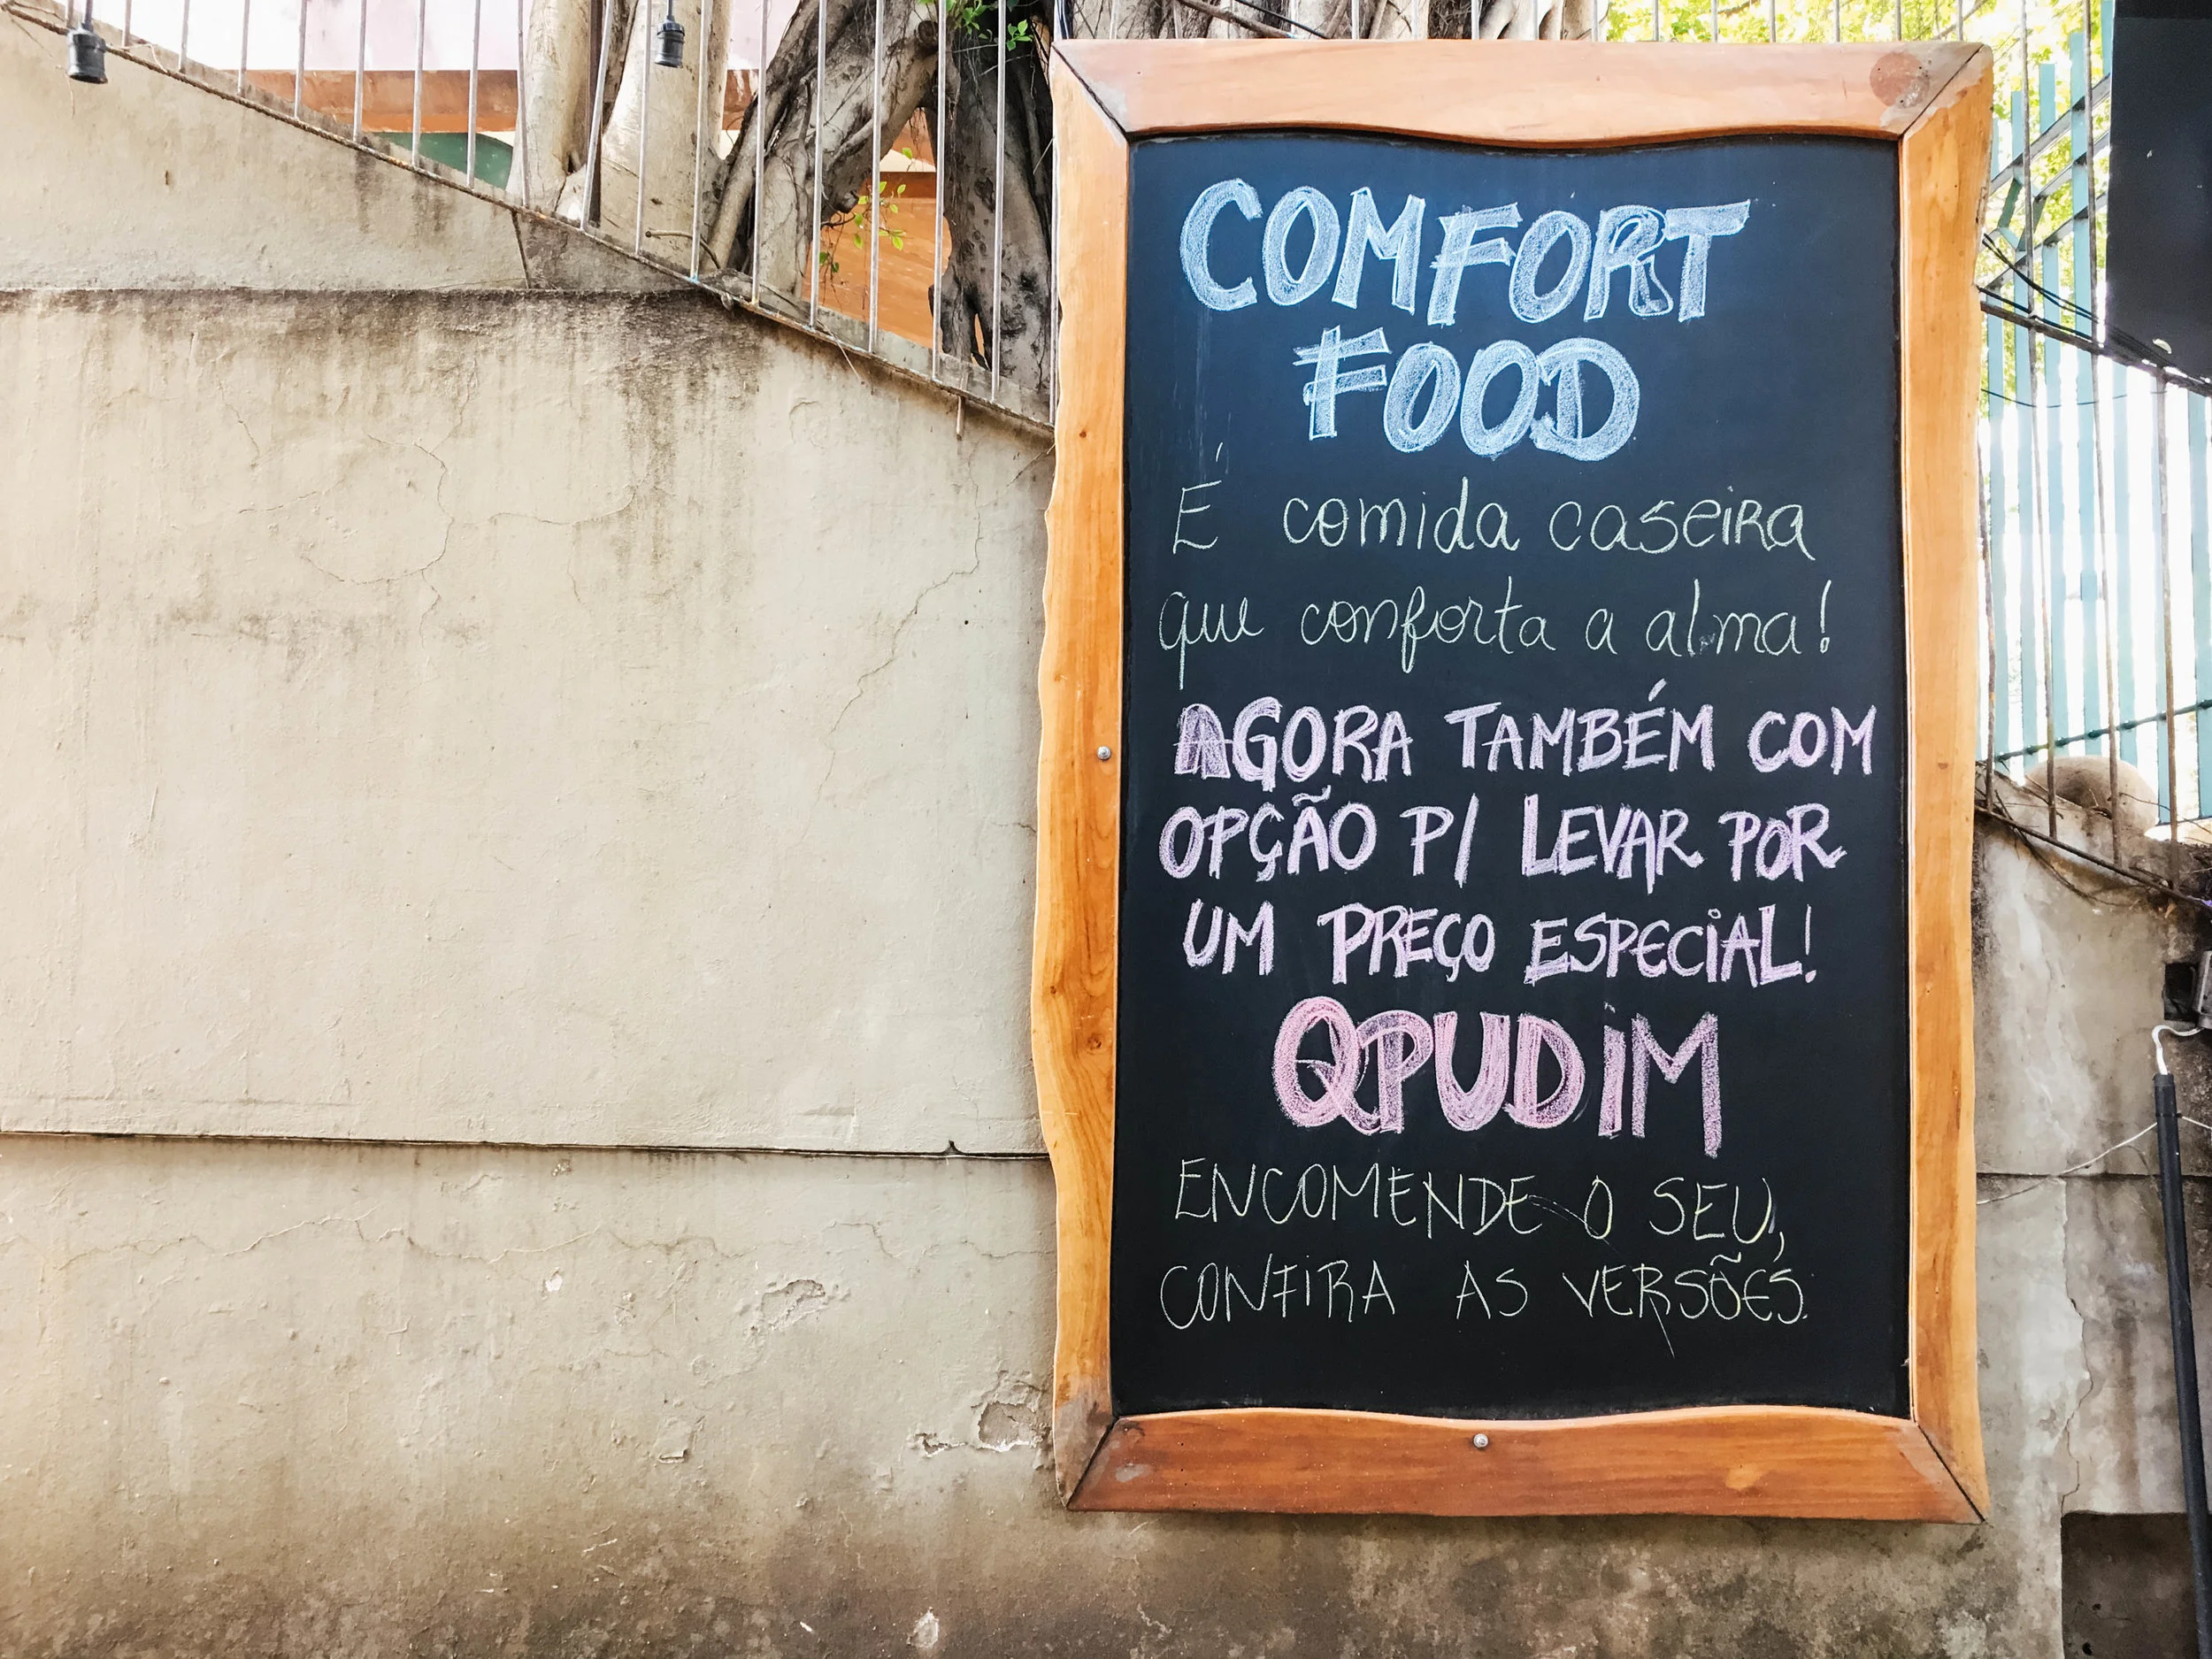 COMFORT
FOOD
É comida caseira
que conforta a alma!
AGORA TAMBÉM COM
OPÇÃO P/ LEVAR POR
UM PREÇO ESPECIAL!
QPUDIM
ENCOMENDE O SEU,
CONFIRA AS VERSÕES.